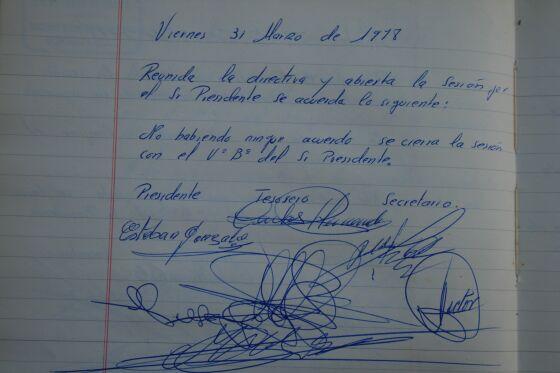 Viernes 31 Marzo de 1978
Reunida la directiva y abierta la sesión por
el Sr Presidente se acuerda lo siguiente:
No habiendo ningun acuerdo se cierra la sesión
con el Vº Bº del Sr Presidente.
Presidente Tesorero Secretario.
Carlos Hernando
Esteban Gonzalo
Victor